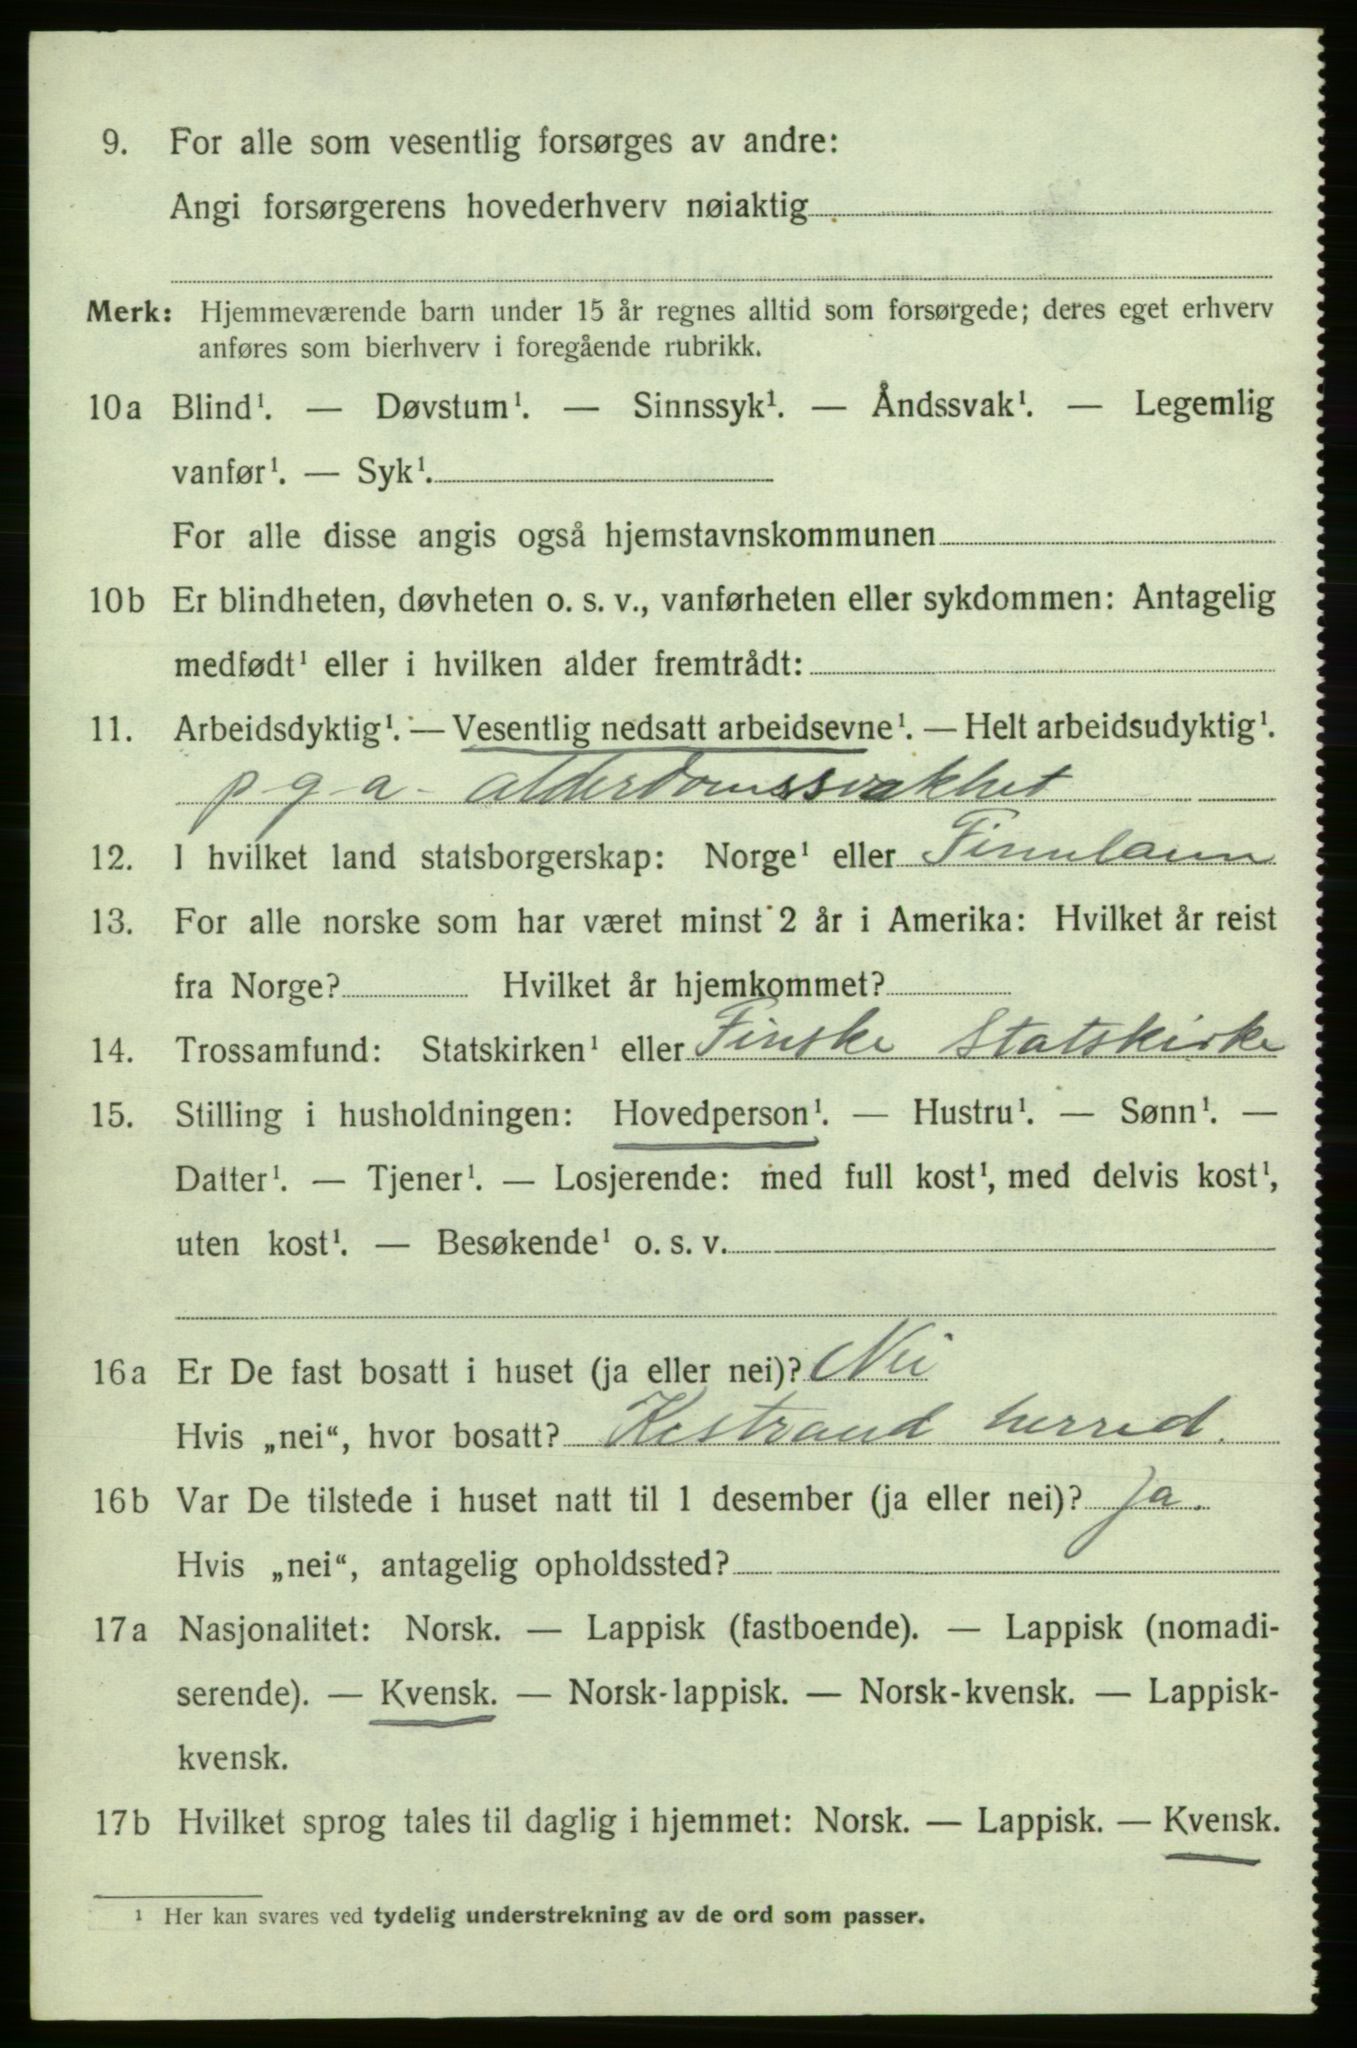 9. For alle som vesentlig forsørges av andre:
Angi forsørgerens hovederhverv nøiaktig
Merk: Hjemmeværende barn under 15 år regnes alltid som forsørgede; deres eget erhverv
anføres som bierhverv i foregående rubrikk.
10a Blind¹. — Døvstum¹. — Sinnssyk¹. — Åndssvak¹. — Legemlig
vanfør¹. — Syk¹.
For alle disse angis også hjemstavnskommunen
10b Er blindheten, døvheten o. s. v., vanførheten eller sykdommen: Antagelig
medfødt¹ eller i hvilken alder fremtrådt:
11. Arbeidsdyktig¹. — Vesentlig nedsatt arbeidsevne¹. — Helt arbeidsudyktig¹.
p-g-a- alderdomssvakhet
12. I hvilket land statsborgerskap: Norge¹ eller Finnlann
13. For alle norske som har været minst 2 år i Amerika: Hvilket år reist
fra Norge? Hvilket år hjemkommet?
14. Trossamfund: Statskirken¹ eller Finske Statskirke
15. Stilling i husholdningen: Hovedperson¹. — Hustru¹. — Sønn¹. —
Datter¹. — Tjener¹. — Losjerende: med full kost¹, med delvis kost¹,
uten kost¹. — Besøkende¹ o. s. v.
16a Er De fast bosatt i huset (ja eller nei)? Nei
Hvis „nei“, hvor bosatt? Kistrand herred.
16b Var De tilstede i huset natt til 1 desember (ja eller nei)? Ja.
Hvis „nei“, antagelig opholdssted?
17a Nasjonalitet: Norsk. — Lappisk (fastboende). — Lappisk (nomadi-
serende). — Kvensk. — Norsk-lappisk. — Norsk-kvensk. — Lappisk-
kvensk.
17b Hvilket sprog tales til daglig i hjemmet: Norsk. — Lappisk. — Kvensk.
¹ Her kan svares ved tydelig understrekning av de ord som passer.